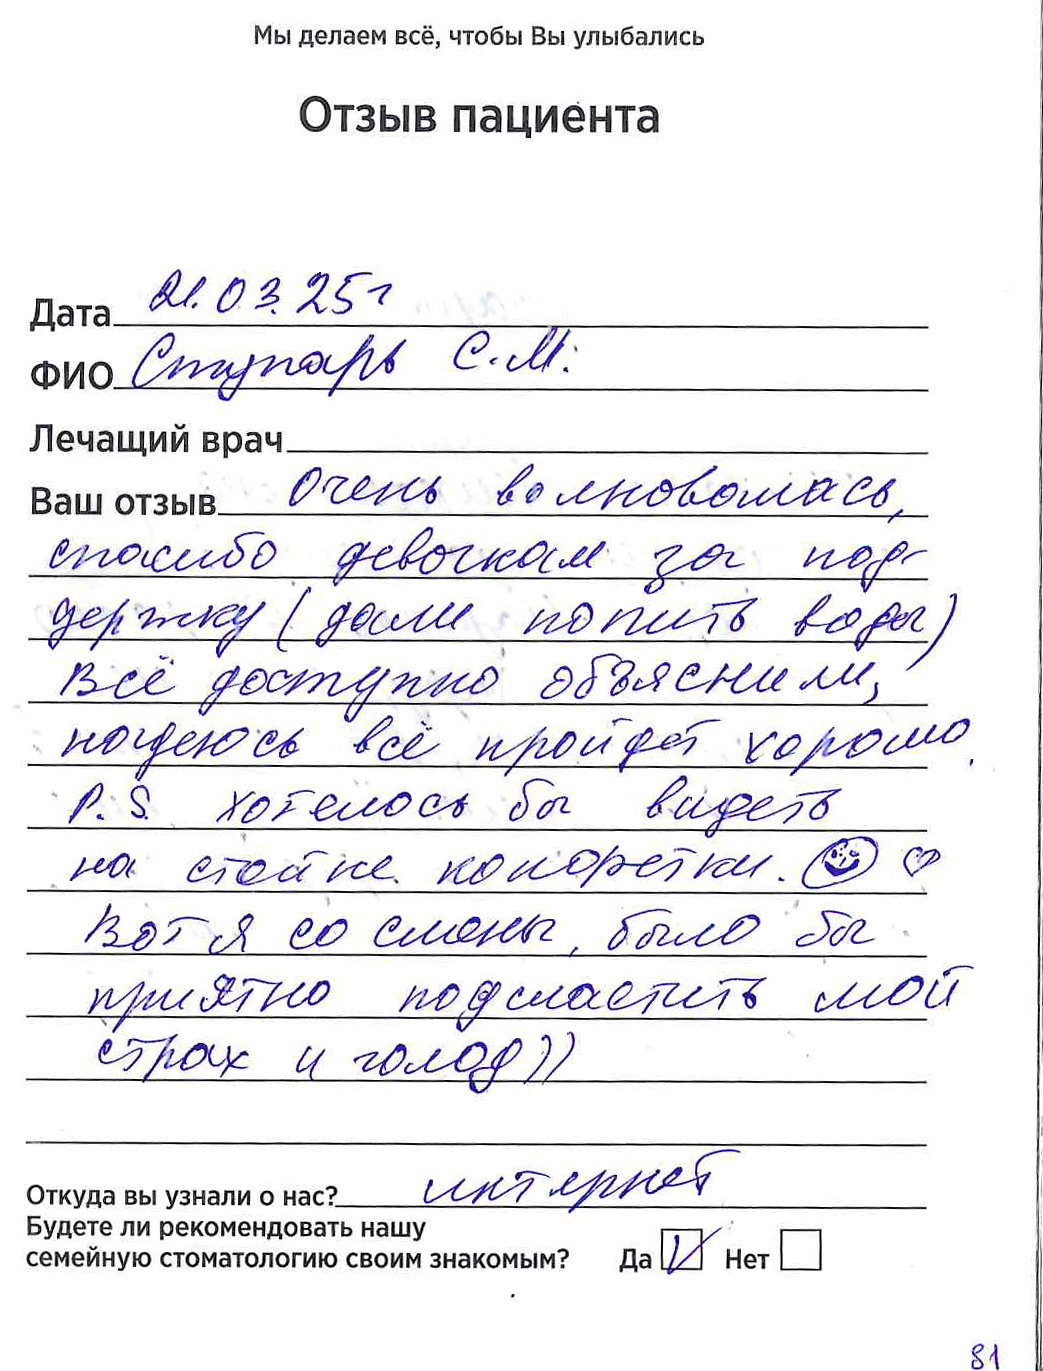 Мы делаем всё, чтобы Вы улыбались
Отзыв пациента
Дата 21.03.25г
ФИО Ступарь С.М.
Лечащий врач
Ваш отзыв Очень волновалась,
спасибо девочкам за под-
держку (дали попить воды)
Всё доступно объяснили,
надеюсь всё пройдет хорошо.
P.S. хотелось бы видеть
на стойке конфетки. ♡
Вот я со смены, было бы
приятно подсластить мой
страх и голод))
Откуда вы узнали о нас? интернет
Будете ли рекомендовать нашу
семейную стоматологию своим знакомым? Да V Нет
81